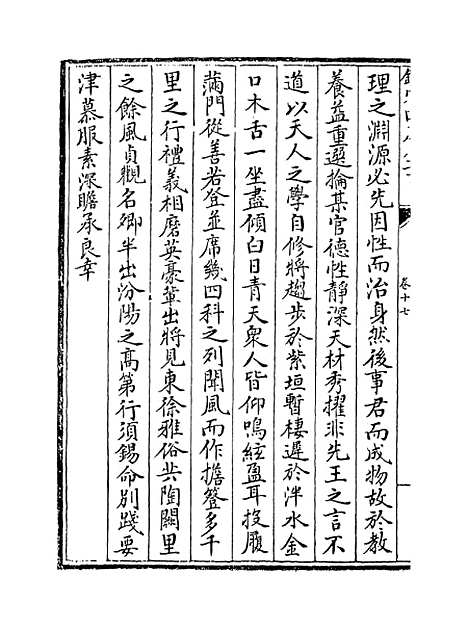 卷十七
理之淵源必先因性而治身然後事君而成物故於教
養益重選掄某官德性靜深天材秀擢非先王之言不
道以天人之學自修將趨步於紫垣暫棲遲於泮水金
口木舌一坐盡傾白日青天衆人皆仰鳴絃盈耳投屨
滿門從善若登並席幾四科之列聞風而作擔簦多千
里之行禮義相磨英豪輩出將見東徐雅俗共陶闕里
之餘風貞觀名卿半出汾陽之高第行須錫命別踐要
津慕服素深瞻承良幸